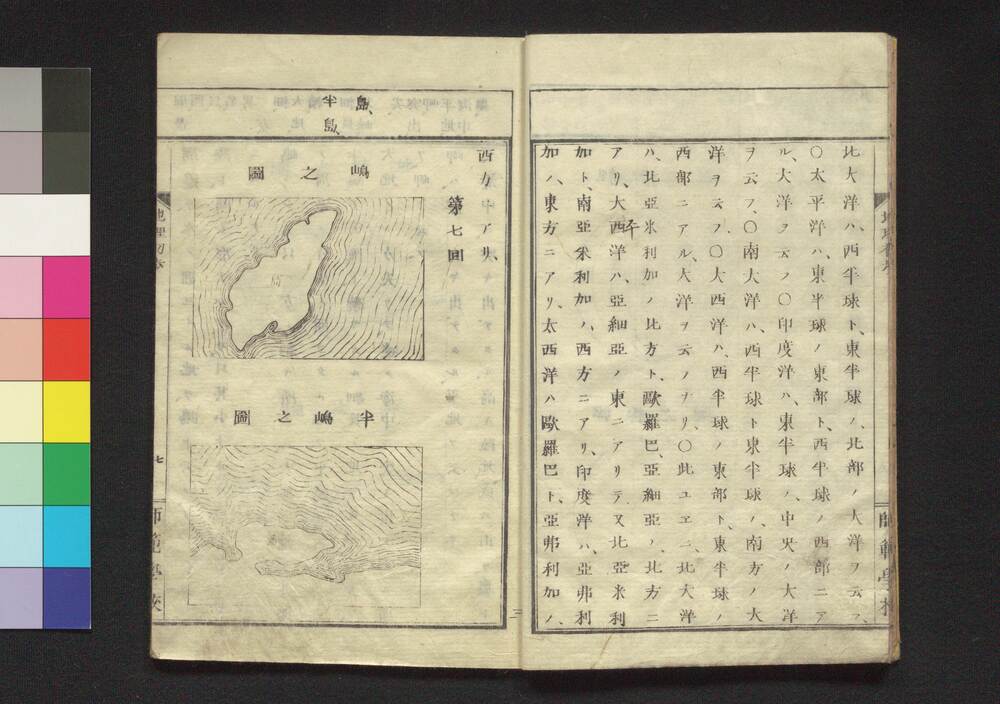 北大洋ハ、西半球ト、東半球ノ、北部ノ大洋ヲ云フ、
〇太平洋ハ、東半球ノ東部ト、西半球ノ西部ニア
ル、大洋ヲ云フ〇印度洋ハ、東半球ノ、中央ノ大洋
ヲ云フ、〇南大洋ハ、西半球ト東半球ノ、南方ノ大
洋ヲ云フ、〇大西洋ハ、西半球ノ東部ト、東半球ノ
西部ニアル、大洋ヲ云フナリ、〇此ユヱニ、北大洋
ハ、北亞米利加ノ北方ト、歐羅巴、亞細亞ノ、北方ニ
アリ、大西洋ハ、亞細亞ノ東ニアリテ又北亞米利
平
加ト、南亞米利加ノ、西方ニアリ、印度洋ハ、亞弗利
加ノ、東方ニアリ、太西洋ハ歐羅巴ト、亞弗利加ノ、
師範學校
島、
半島、
西方ニアリ、
第七回
嶋之圖
半嶋之圖
地理初步
七
師範學校